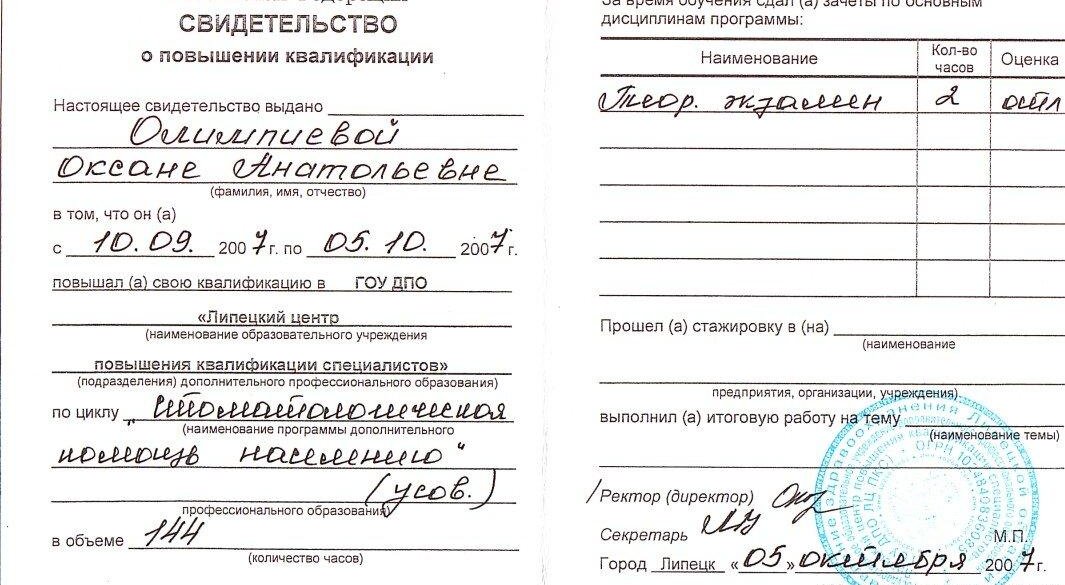 СВИДЕТЕЛЬСТВО
о повышении квалификации
Настоящее свидетельство выдано
Олимпиевой
Оксане Анатольевне
(фамилия, имя, отчество)
в том, что он (а)
с 10.09. 2007 г. по 05.10. 2007 г.
повышал (а) свою квалификацию в ГОУ ДПО
«Липецкий центр
(наименование образовательного учреждения
повышения квалификации специалистов»
(подразделения) дополнительного профессионального образования)
по циклу „Стоматологическая
(наименование программы дополнительного
помощь населению"
(усов.)
профессионального образования)
в объеме 144
(количество часов)
За время обучения сдал (а) зачеты по основным
дисциплинам программы:
Наименование Кол-во часов Оценка
Теор. экзамен 2 отл
Прошел (а) стажировку в (на)
(наименование
предприятия, организации, учреждения)
выполнил (а) итоговую работу на тему
(наименование темы)
Ректор (директор)
Секретарь
М.П.
Город Липецк «05» октября 2007 г.